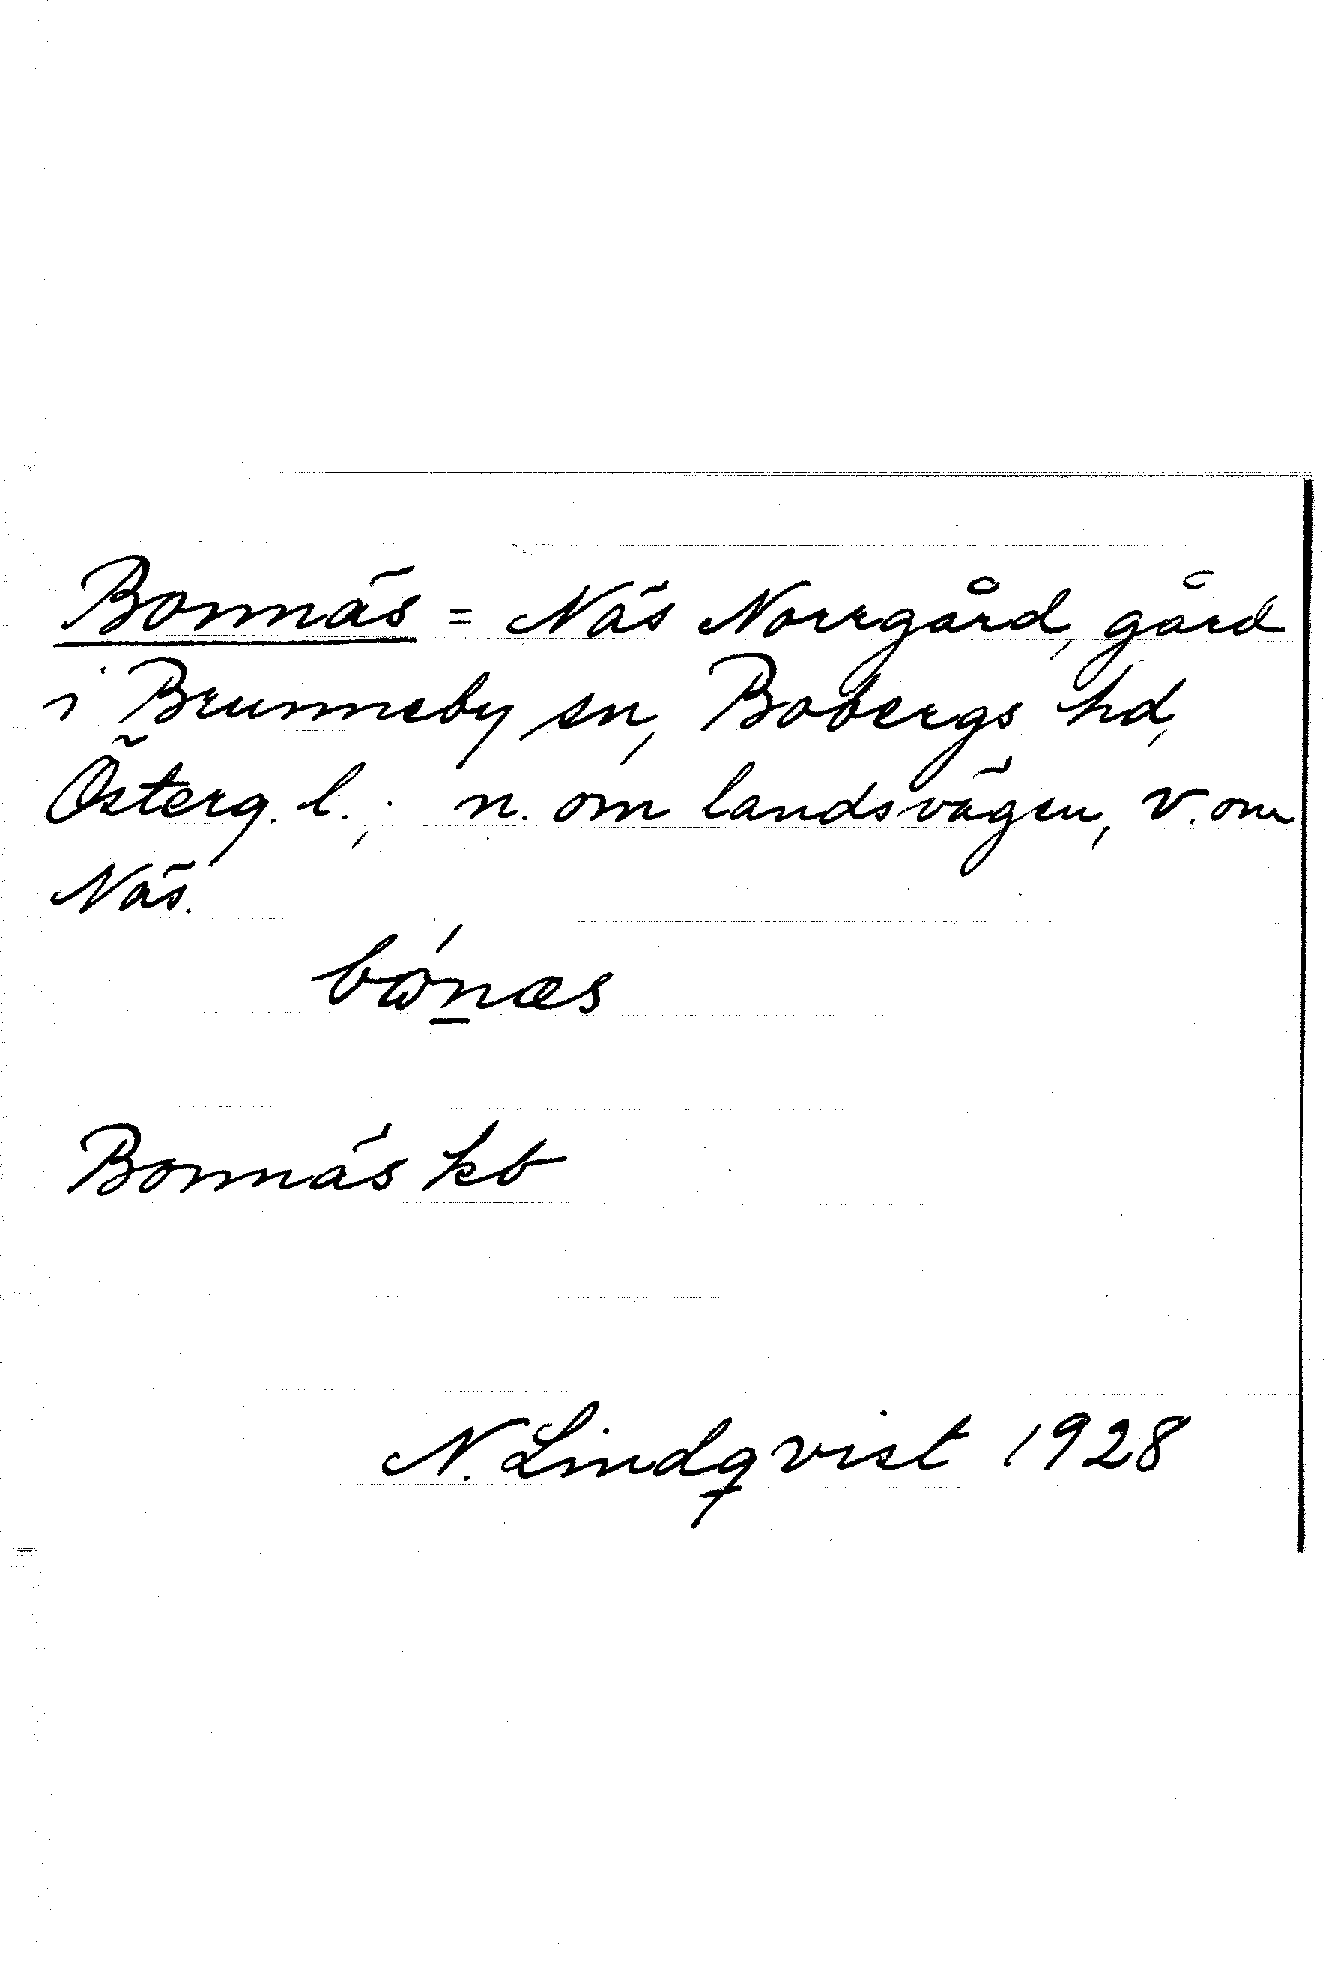 Bonnäs = Näs Norrgård, gård
i Brunneby sn, Bobergs hd,
Österg. l.; n. om landsvägen, v. om
Näs.
bónæs
Bonnäs kb
N. Lindqvist 1928